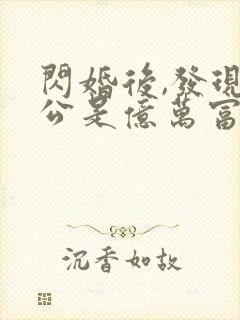 閃婚後,發現
公是億萬富
沉香如故